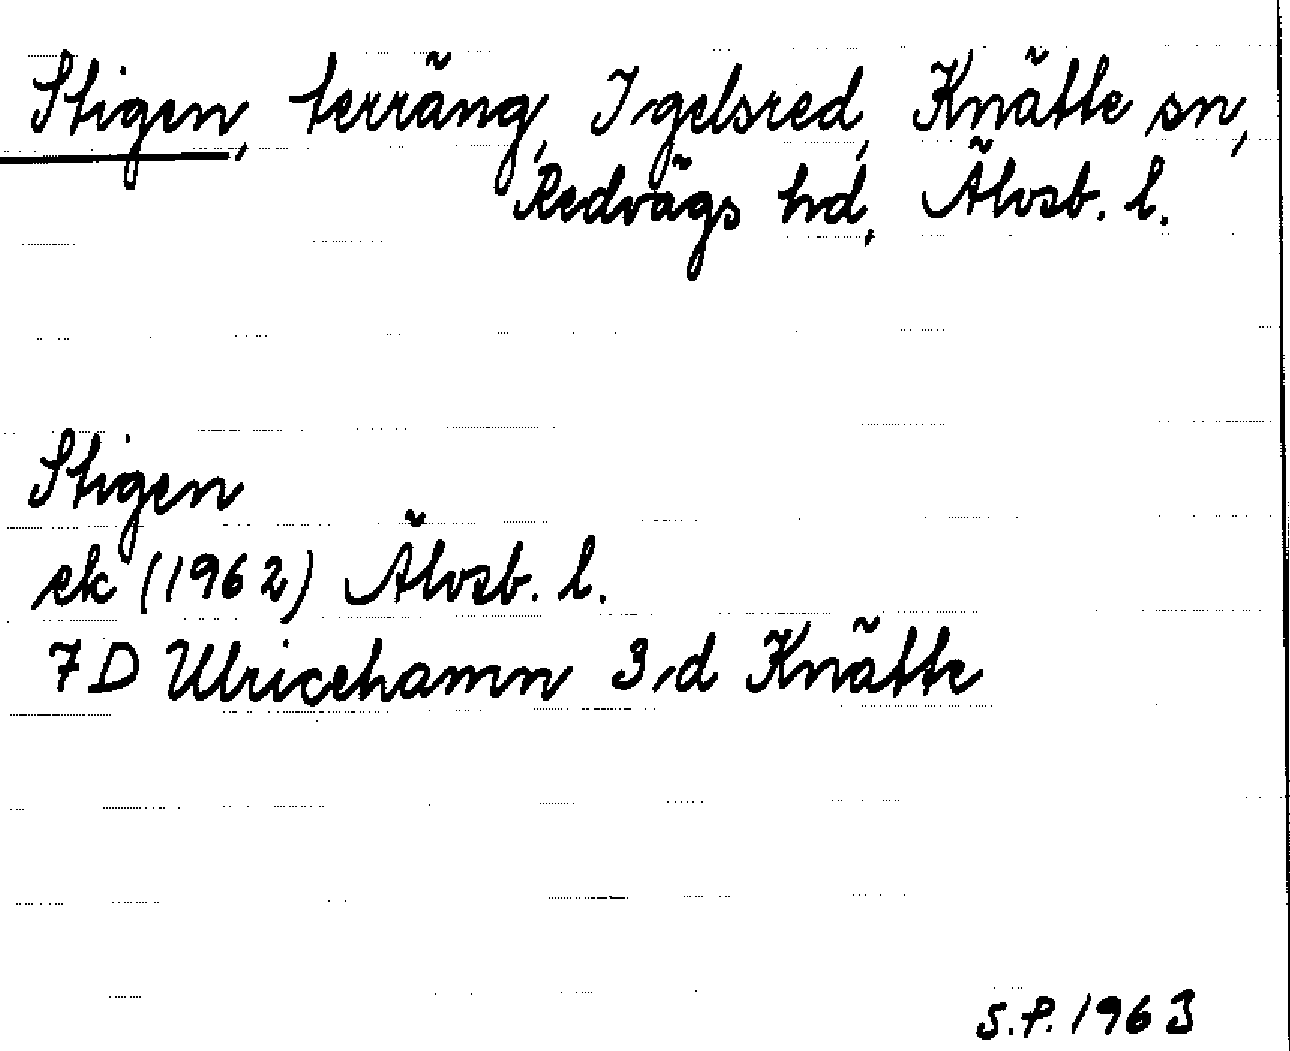 Stigen, terräng, Igelsred, Knätte sn,
Redvägs hd, Älvsb. l.
Stigen
ek (1962) Älvsb. l.
7D Ulricehamn 3,d Knätte
S.P. 1963